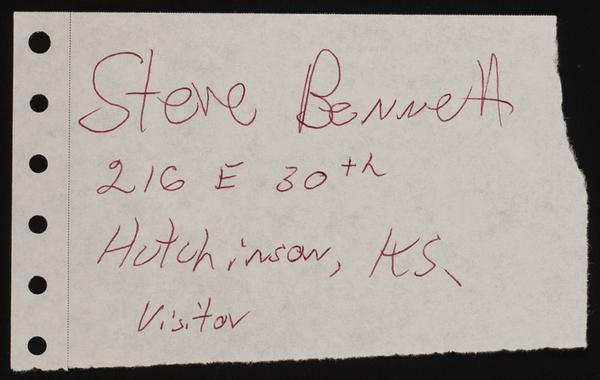 Steve Bennett
216 E 30th
Hutchinson, KS.
Visitor